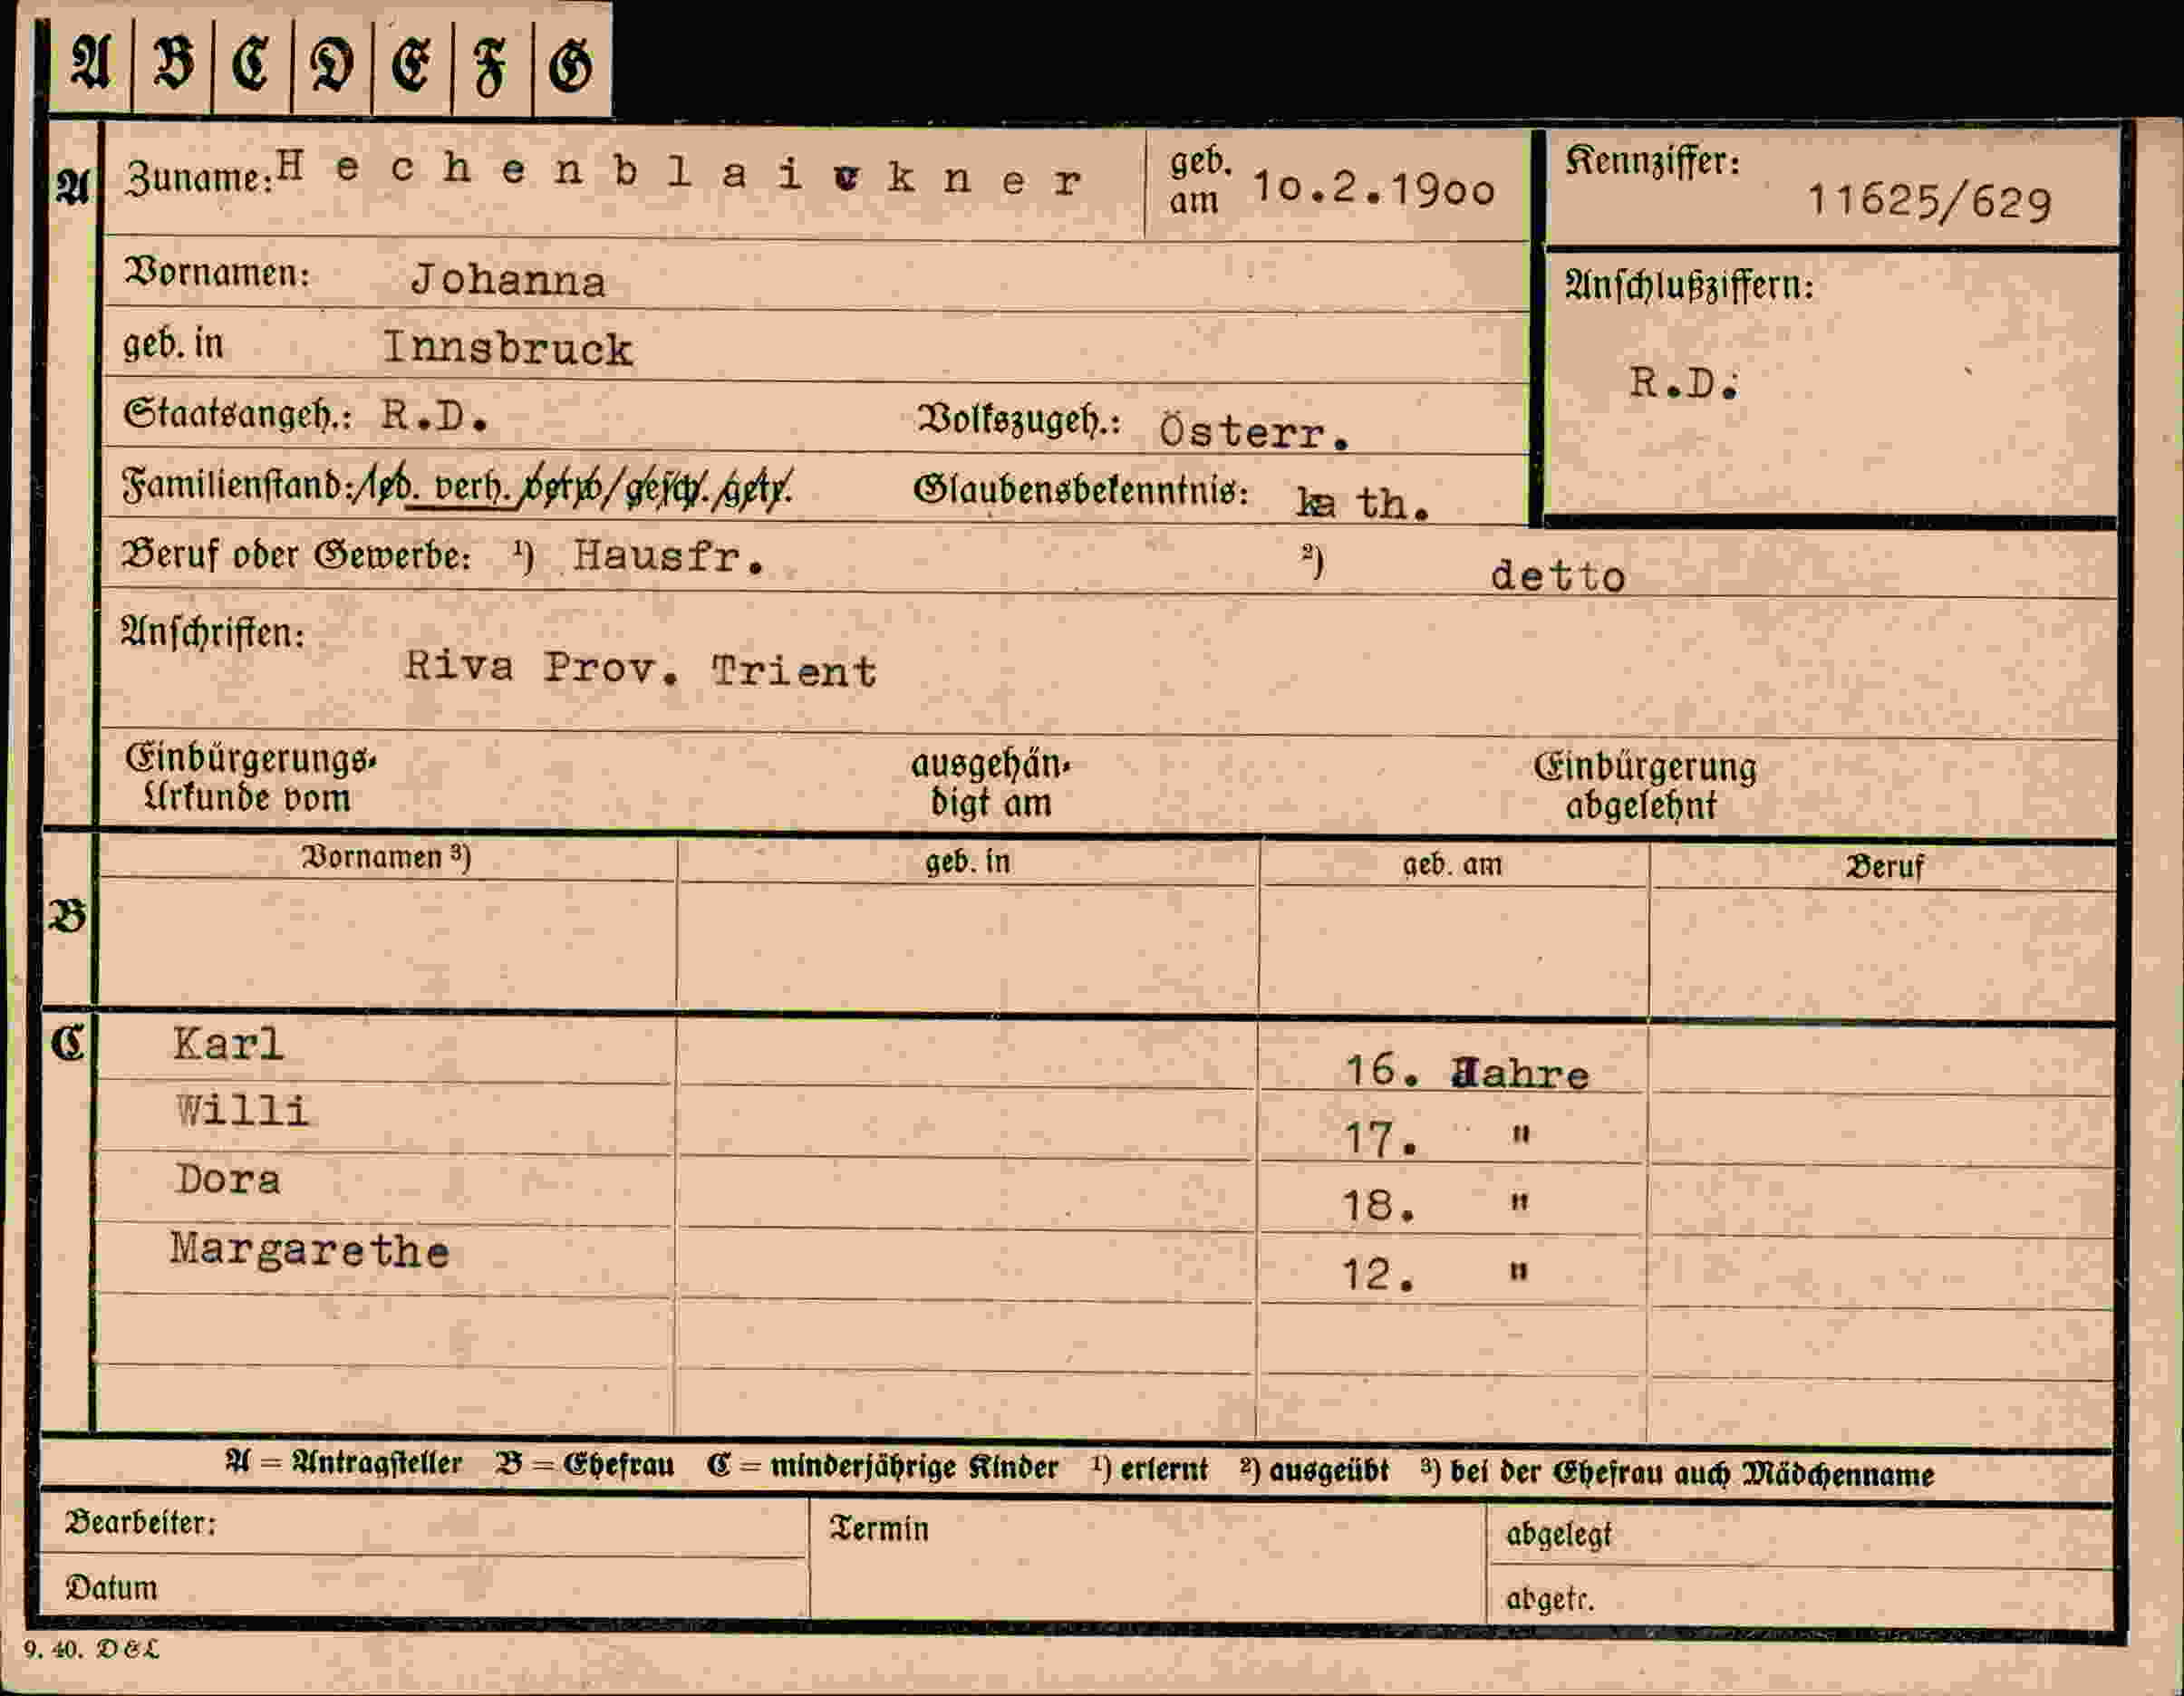 A B C D E F G
A Zuname: Hechenblaickner geb. am 10.2.1900 Kennziffer: 11625/629
Vornamen: Johanna Anschlußziffern:
geb. in Innsbruck R.D.
Staatsangeh.: R.D. Volkszugeh.: Österr.
Familienstand: led. verh. verw. gesch. getr. Glaubensbekenntnis: ka th.
Beruf oder Gewerbe: ¹) Hausfr. ²) detto
Anschriften:
Riva Prov. Trient
Einbürgerungs- ausgehän- Einbürgerung
Urkunde vom digt am abgelehnt
Vornamen ³) geb. in geb. am Beruf
B
C Karl 16. Jahre
Willi 17. "
Dora 18. "
Margarethe 12. "
A = Antragsteller B = Ehefrau C = minderjährige Kinder ¹) erlernt ²) ausgeübt ³) bei der Ehefrau auch Mädchenname
Bearbeiter: Termin abgelegt
Datum abgetr.
9. 40. D&L